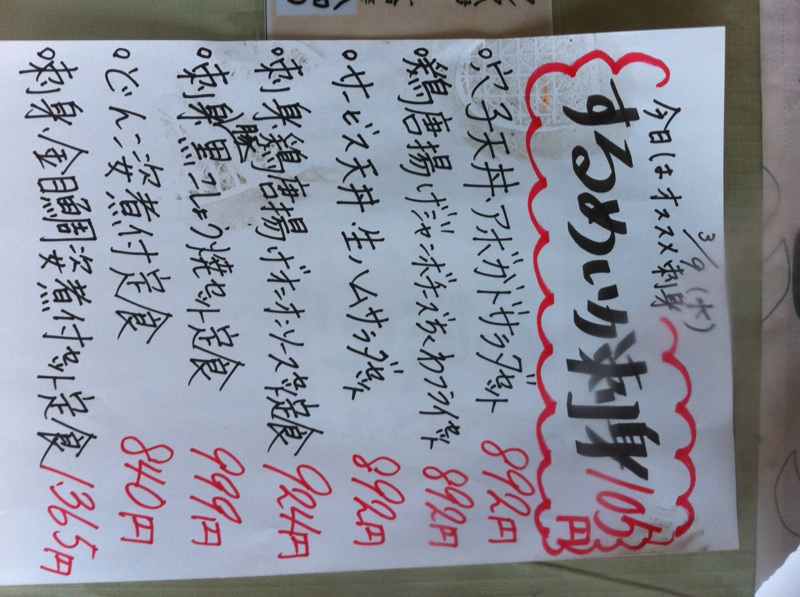 3/9(水)
今日はオススメ刺身
するめいか刺身105円
○穴子天丼、アボガドサラダセット 892円
○鶏唐揚げジャンボチーズちくわフライセット 892円
○サービス天丼・生ハムサラダセット 892円
○刺身、鶏唐揚げオニオンソースセット定食 924円
○刺身、豚黒こしょう焼セット定食 999円
○どんこ姿煮付定食 840円
○刺身、金目鯛姿煮付セット定食 1365円